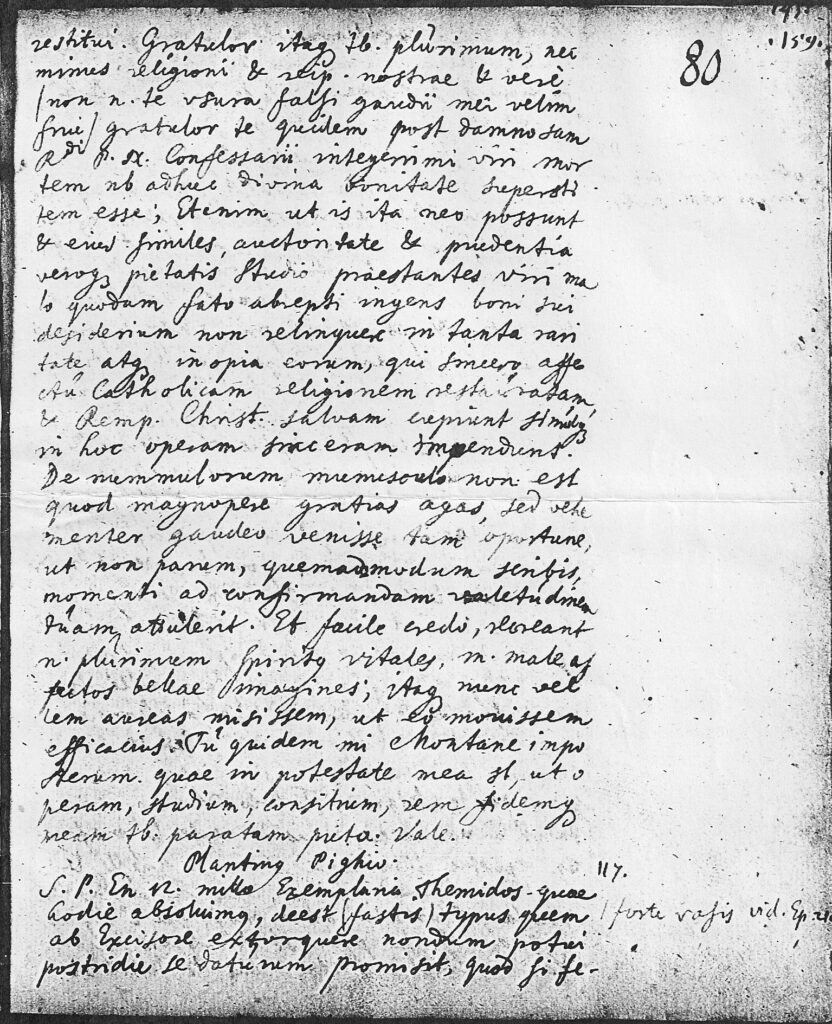 159.
80
restitui. Gratulor itaq tb. plurimum, nec
minus religioni & reip. nostrae & verè
(non n. te usura falsi gaudii mei velim
frui) gratulor te quidem post damnosam
Rdi P. Confessarii integerimi viri mor
tem nb adhuc divina bonitate supersti
tem esse; Etenim ut is ita neo possunt
& eius similes, auctoritate & prudentia
veroq pietatis studio praestantes viri ma
lo quodam fato abrepti ingens boni sui
desiderium non relinquere in tanta rari
tate atq inopia eorum, qui sincero affe
ctu Catholicam religionem restauratam
& Remp. Christ. salvam cupiunt simulq
in hoc operam sinceram impendunt.
De nummulorum munusculo non est
quod magnopere gratias agas, sed vehe
menter gaudeo venisse tam oportune,
ut non parum, quemadmodum scribis,
momenti ad confirmandam valetudinem
tuam attulerit. Et facile credo, recreant
n. plurimum spiritq vitales, in male af
fectos bellae imagines; itaq nunc vel
lem aureas misissem, ut eo movissem
efficacius. Tu quidem mi Montane impo
sterum quae in potestate mea st, ut o
peram, studium, consilium, rem fidemq
meam tb. paratam puta. Vale.
Plantinq Pighio.
117.
S. P. En 12. mitto Exemplaria Themidos quae
hodie absoluimq, deest (fastis) typus quem
/ forte vasis vid. Ep.
ab Excisore extorquere nondum potui
postridie se daturum promisit, quod si fe-